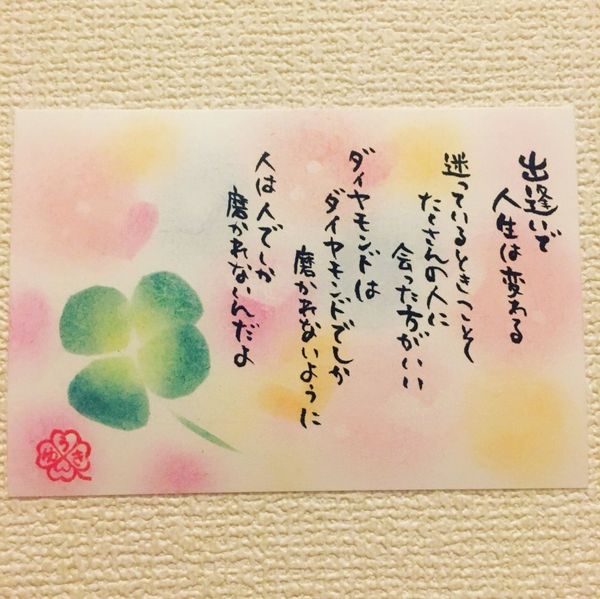 出逢いで
人生は変わる
迷っているときこそ
たくさんの人に
会った方がいい
ダイヤモンドは
ダイヤモンドでしか
磨かれないように
人は人でしか
磨かれないんだよ
ゆうき